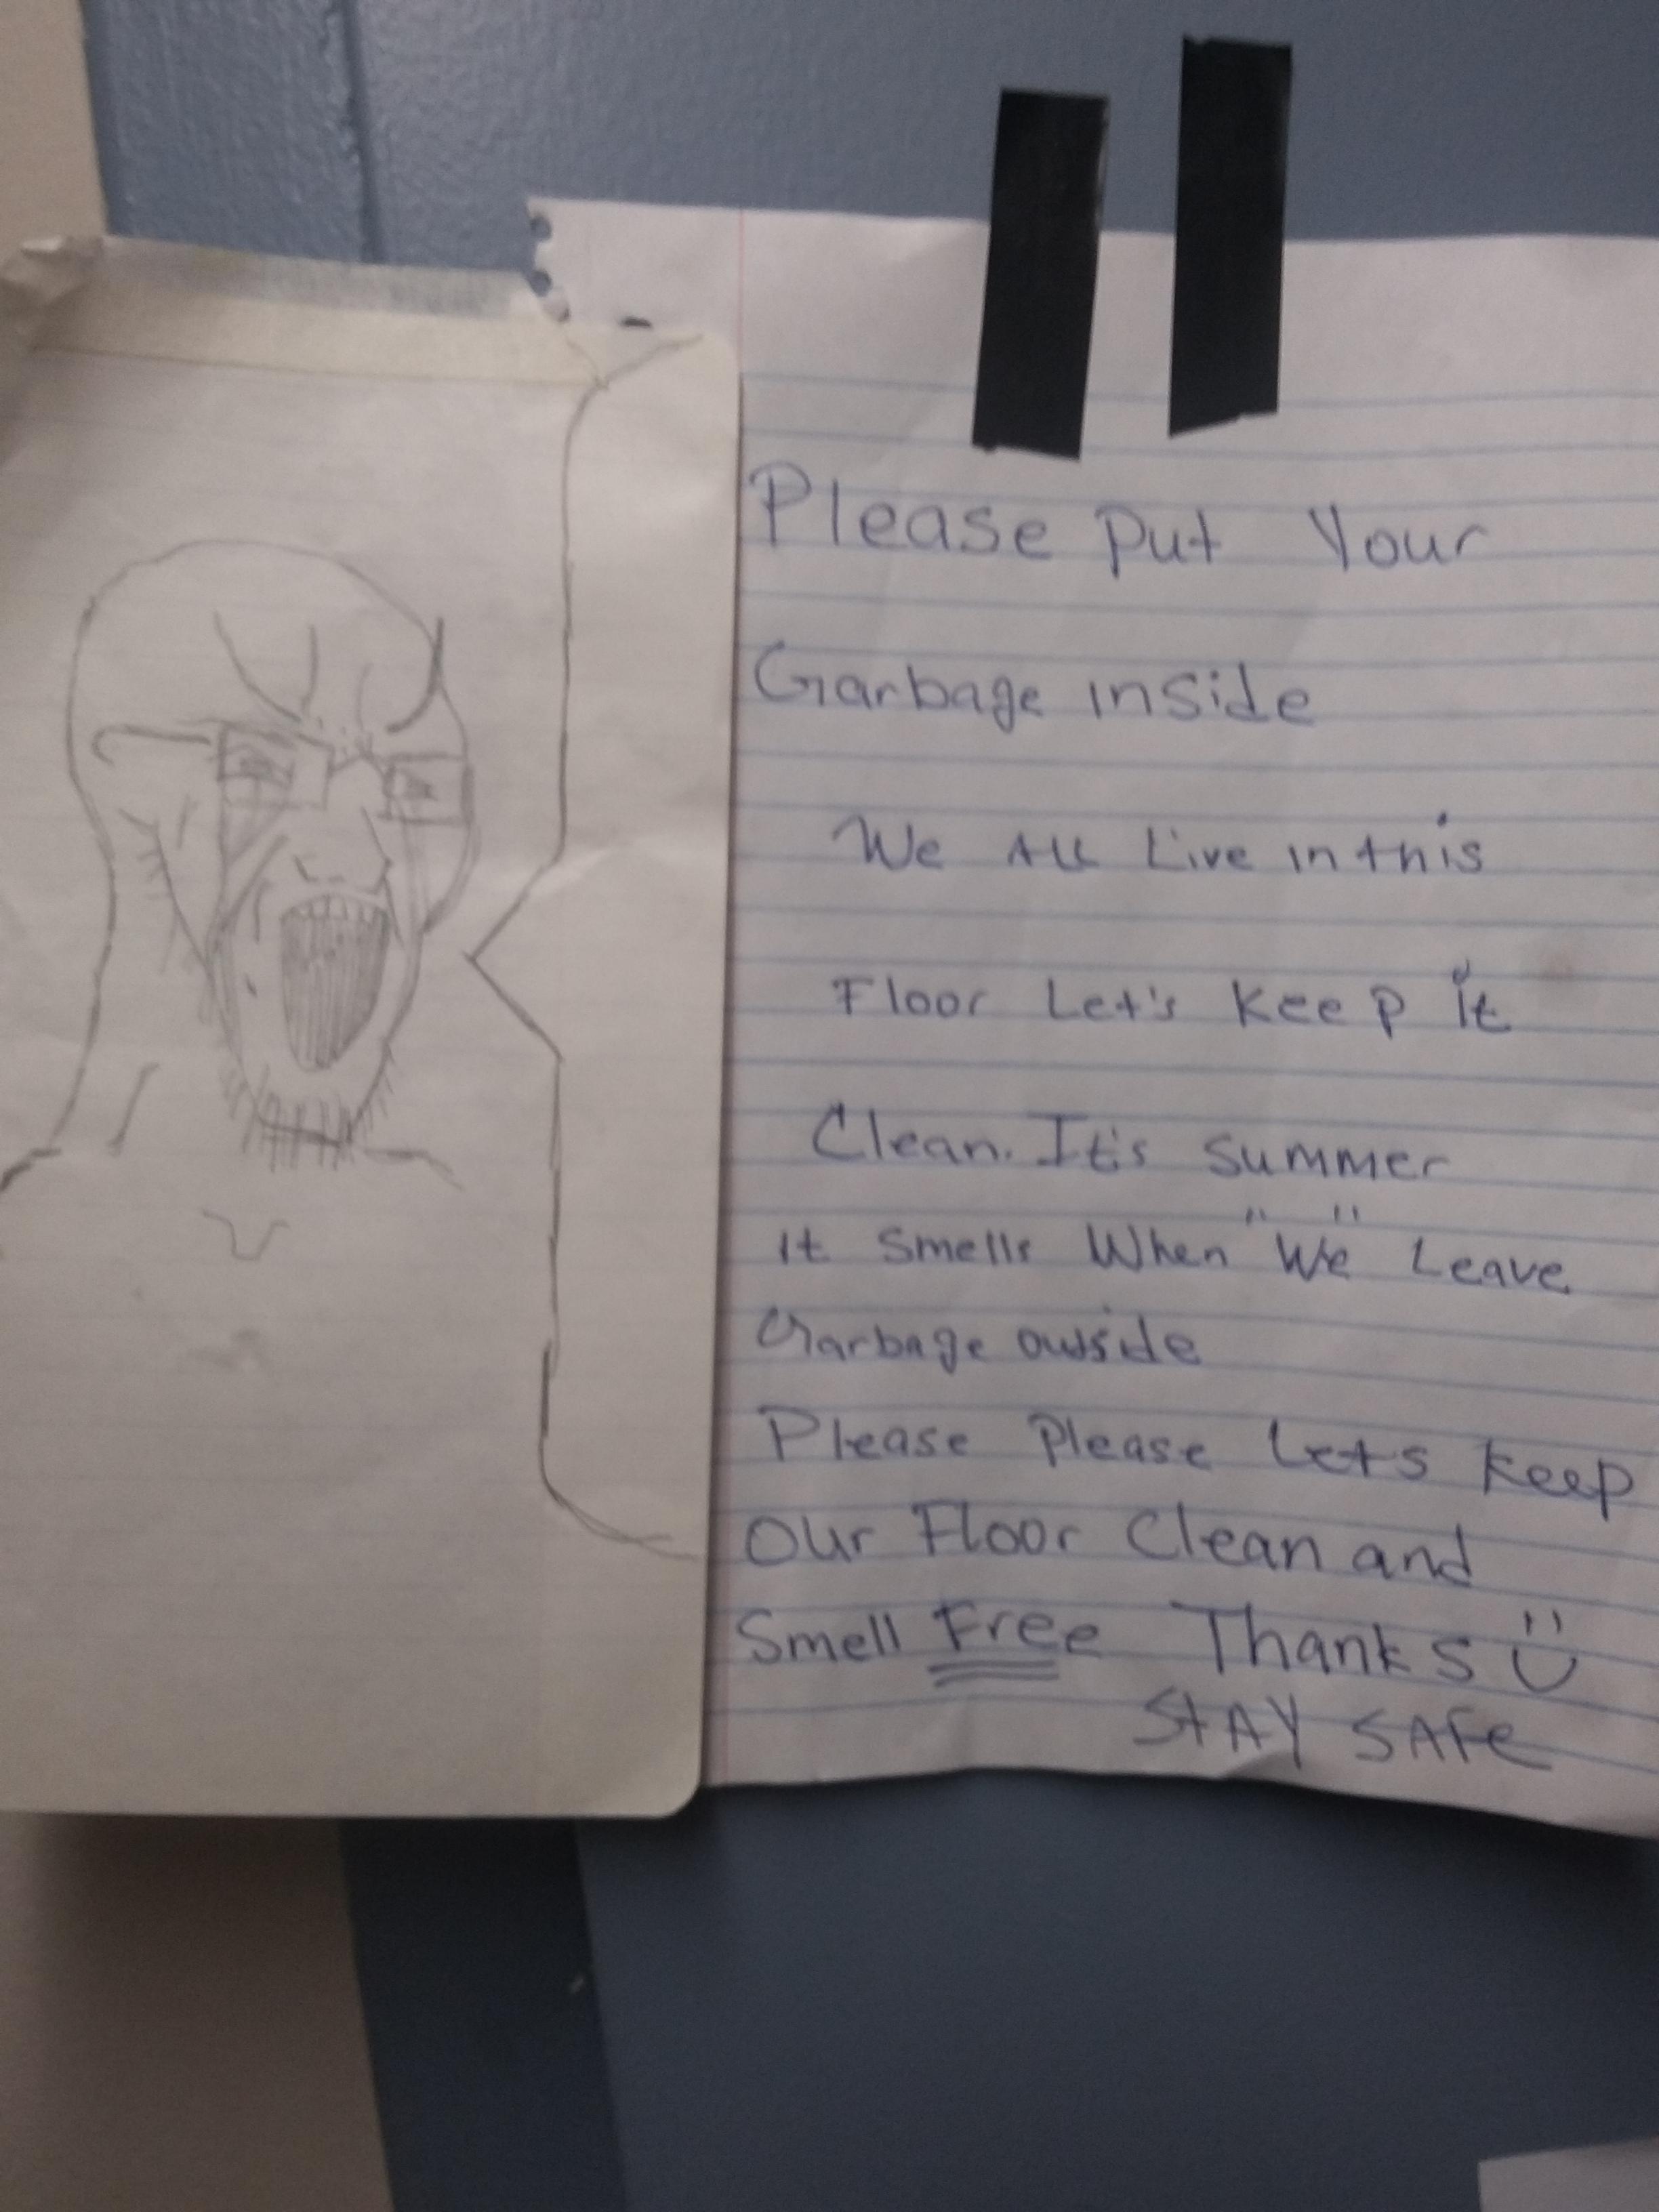 Please Put Your
Garbage inside
We All Live in this
Floor Let's Keep it
Clean. It's Summer
it Smells When "We" Leave
Garbage outside
Please Please Let's Keep
Our Floor Clean and
Smell Free Thanks
STAY SAFE